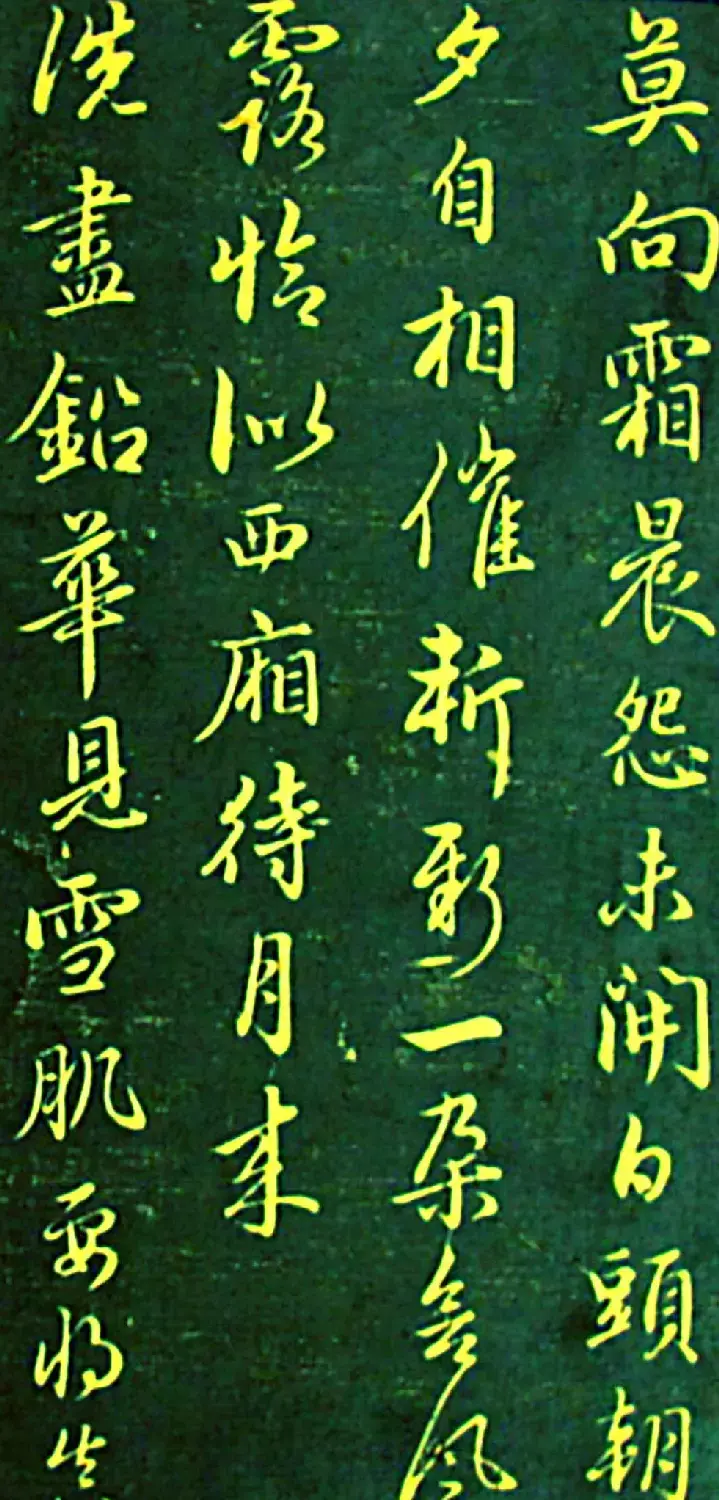 莫向霜晨怨未開白頭朝
夕自相催斬新一朵含風
露恰似西廂待月來
洗盡鉛華見雪肌要將生